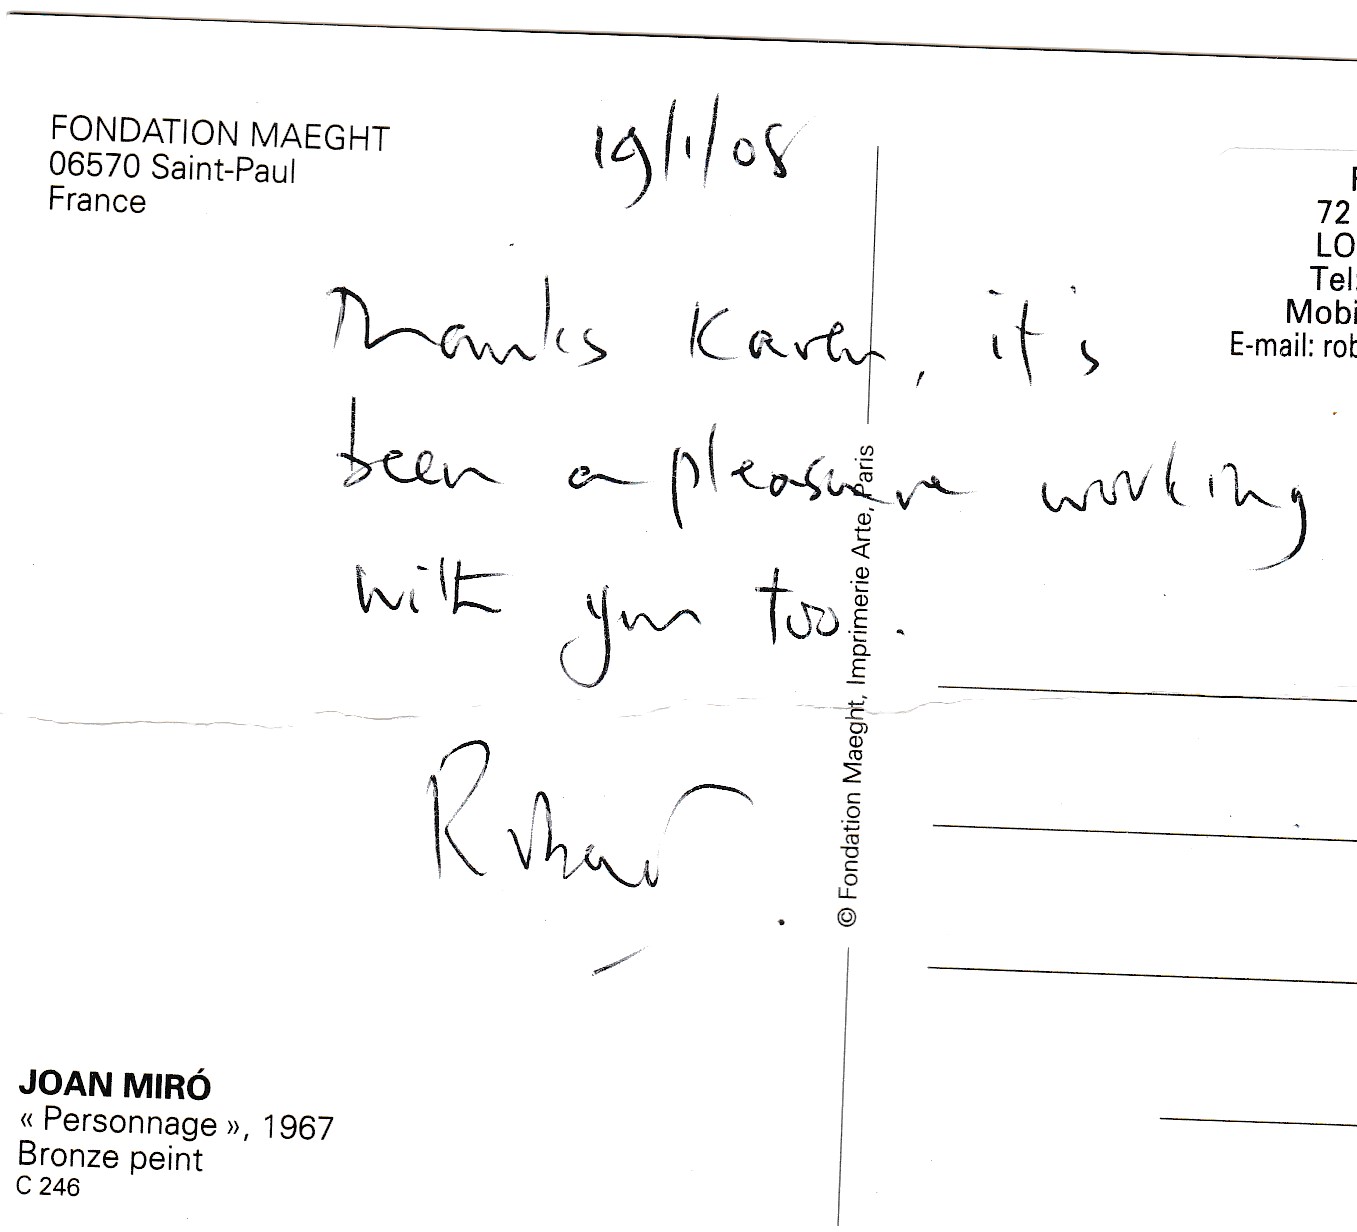 FONDATION MAEGHT
06570 Saint-Paul
France
19/1/08
Thanks Karen, it's
been a pleasure working
with you too.
Robert
JOAN MIRÓ
« Personnage », 1967
Bronze peint
C 246
© Fondation Maeght, Imprimerie Arte, Paris
72
LO
Tel:
Mobi
E-mail: rob